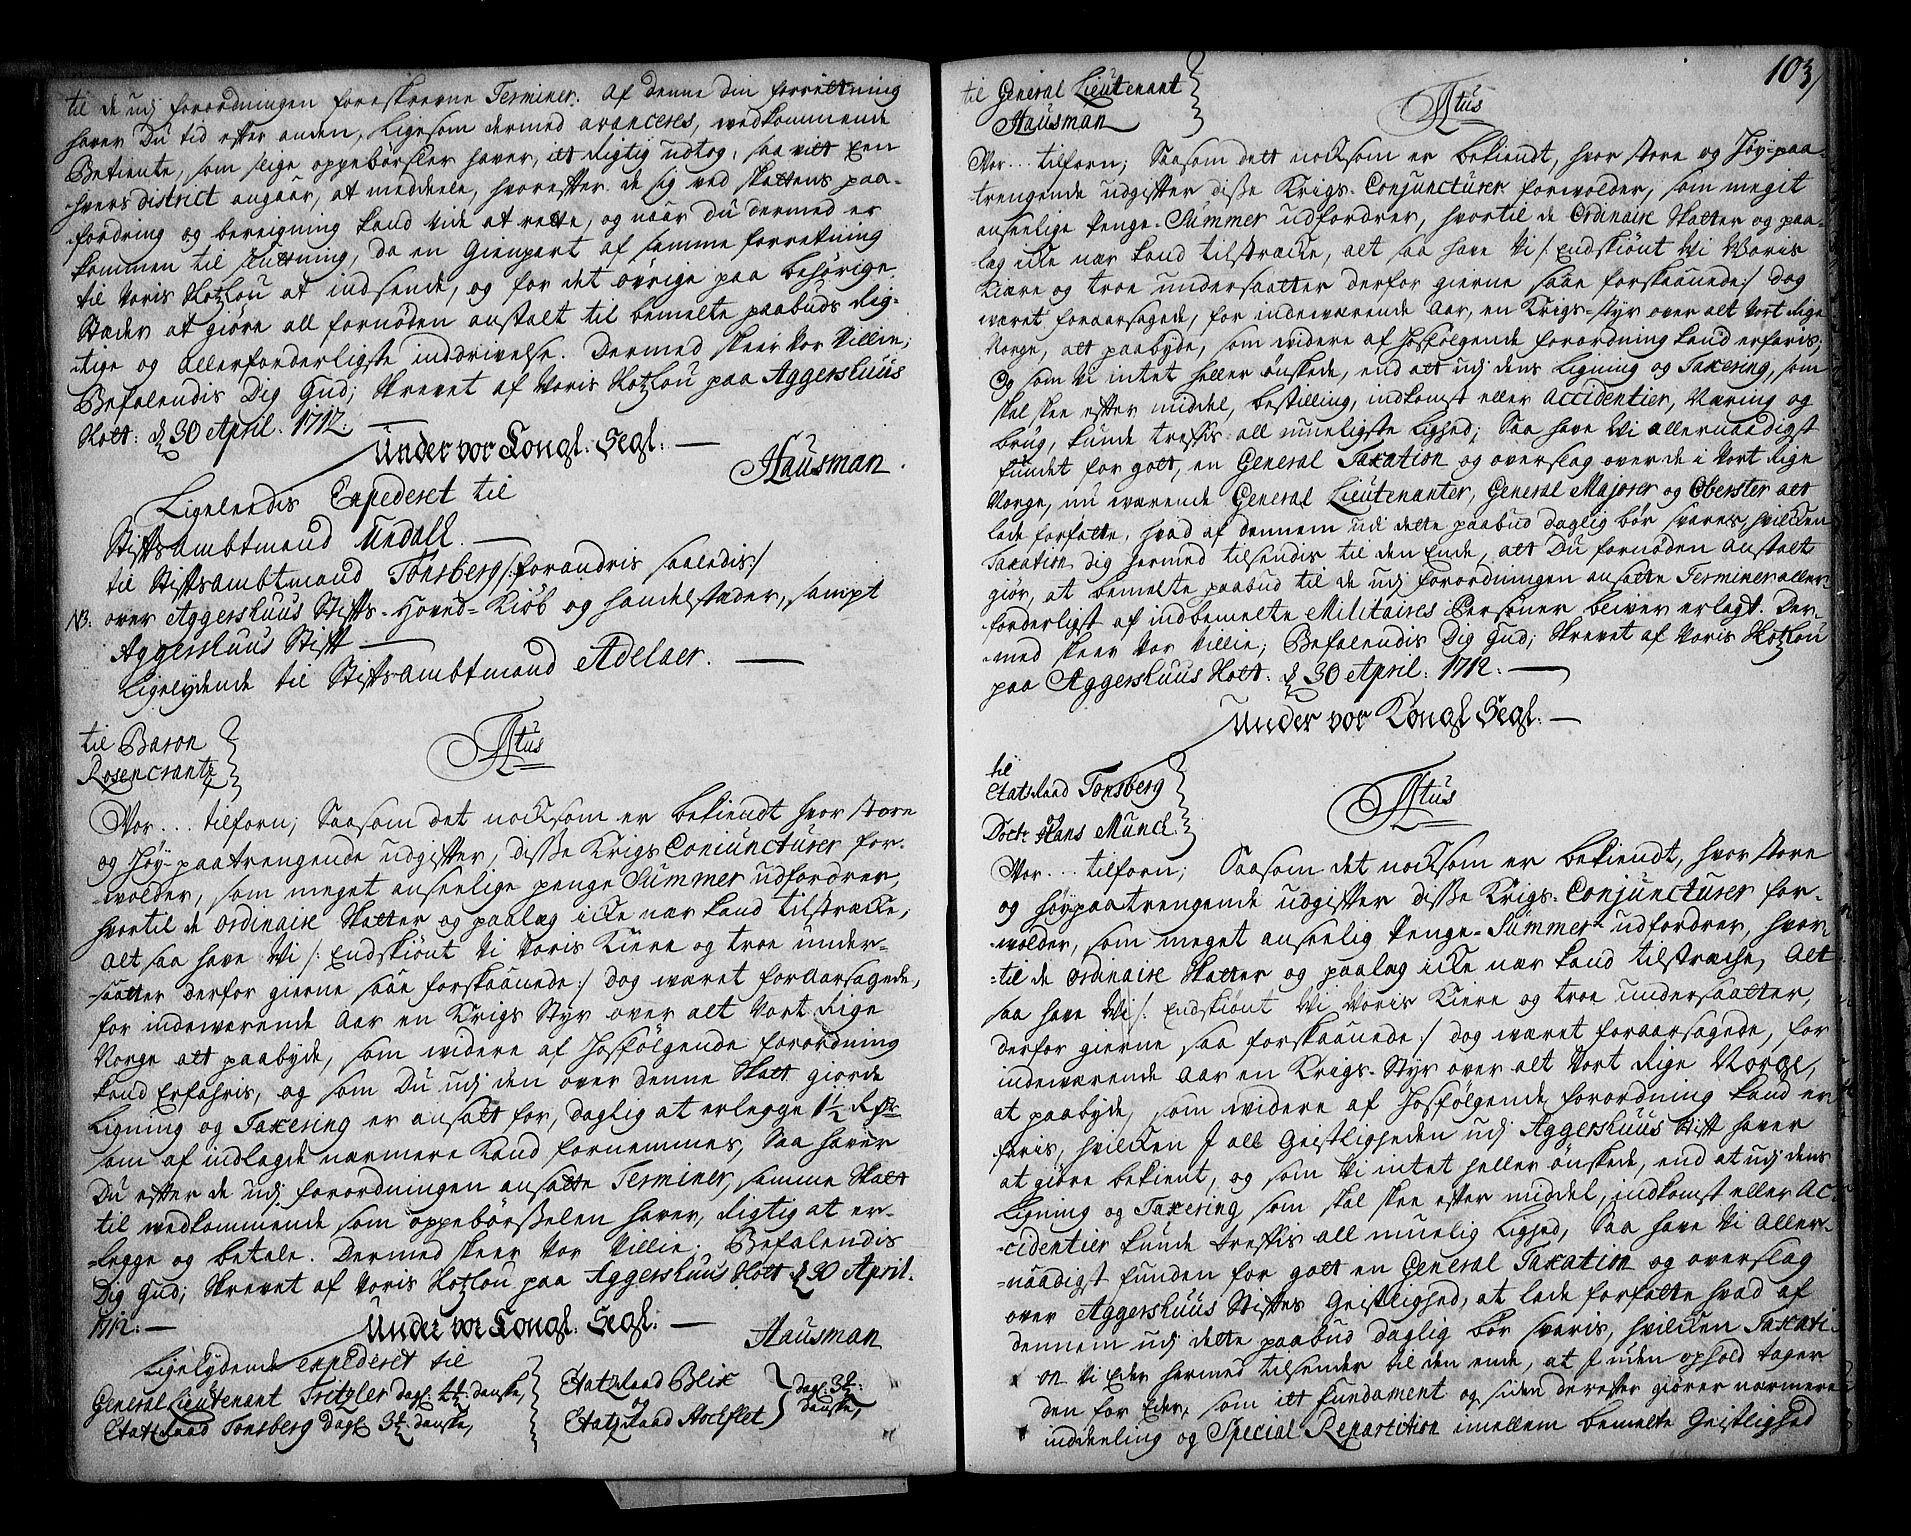 til de udj forordningen foreskrevne Terminer. Af denne din forrettning
haver Du tid efter anden, Ligesom dermed avanceres, wedkommende
Betiente, som slige oppebörsler haver, itt Rigtig udtog, saa vitt Een
hvers district angaar, at meddeele, hvorefter de sig ved skattens paa-
fordring og bereigning kand vide at rette, og naar Du dermed er
kommen til slutning, da en Gienpart af samme forretning
til Voris Slotzlou at indsende, og for det övrige paa behörige
Stæder at giöre all fornöden anstalt til bemelte paabuds Rig-
tige og allerforderligste inddrivelse. Dermed skeer Vor Villie;
Befalendis Dig Gud; Skrevet af Voris Slotzlou paa Aggershuus
Slott: d 30 April. 1712.
Under vor Kongl. Segl.
Hausman.
Ligelendis Expederet til
Stiftsambtmand Undall.
til Stiftsambtmand Tonsberg /:forandris saaledis:/
NB. over Aggershuus Stifts-Hoved-Kiöb og handelstæder, sampt
Aggershuus Stift
Ligelydende til Stiftsambtmand Adelaer.
til Baron
Rosencrantz
Atus
Vor... tilforn; Saasom det nocksom er bekiendt hvor store
og Höy-paatrengende udgifter, disse Krigs Coniuncturer for-
wolder, som meget anseelige penge Summer udfordrer,
hvortil de ordinaire Skatter og paalæg icke nær kand tilstræcke,
Alt saa have Wi /: Endskiönt Vi Voris Kiere og troe under-
saatter derfor gierne saae forskaanede:/ dog wæret foraarsagede,
for indewærende Aar en Krigs Styr over alt Vort Rige
Norge alt paabyde, som widere af Hosfölgende forordning
kand Erfahris, og som Du udj den over denne Skatt giorde
Ligning og Taxering er ansatt for, daglig at erlegge 1½ Rdr
som af indlagde nærmere kand fornemmes, Saa haver
Du efter de udj forordningen ansatte Terminer, samme Skatt
til wedkommende som oppebörsselen haver, Rigtig at er-
legge og betale. Dermed skeer Vor Villie; Befalendis
Dig Gud; Skrevet af Voris Slotzlou paa Aggershuus Slott d 30 April.
1712.
Under vor Kongl. Segl.
Hausman
Ligelydende expederet til
General Lieutenant Tritzler dagl: 4½: danske,
Etatzraad Tonsberg dagl 3½ danske,
Etatzraad Blix
og
Etatzraad Stocflet
dagl: 3½:
danske,
103
til General Lieutenant
Hausman
Atus
Vor... tilforn; Saasom dett nocksom er bekiendt, hvor store og Höy-paa-
trengende udgifter disse Krigs-Conjuncturer forwolder, som megit
anseelige Penge-Summer udfordrer, hvortil de Ordinaire Skatter og paa-
læg icke nær kand tilstræcke, alt saa have Vi /: Endskiönt Vi Voris
Kiære og troe undersaatter derfor gierne saae forskaanede:/ dog
wæret foraarsagede, for indewærende Aar, en Krigs-Styr over alt Vort Rige
Norge, alt paabyde, som widere af Hosfölgende forordning kand erfaris;
Og som Vi intet heller önskede, end att udj dens Ligning og Taxering, som
skal skee efter middel, bestilling, indkomst eller Accidentier, Næring og
brug, kunde treffis all mueligste Lighed; Saa have Wi allernaadigst
fundet for gott, en General Taxation og overslag over de i Vort Rige
Norge, nu wærende General Lieutenanter, General Majorer og Oberster att
lade forfatte, hvad af dennem udi dette paabud daglig bör svares, hvilcken
Taxation dig hermed tilsendis til den Ende, att Du fornöden Anstalt
giör, at bemelte paabud til de udj forordningen ansatte Terminer aller-
forderligst af indbemelte Militaires Personer bliver erlagt. Der-
med skeer Vor Villie; Befalendis Dig Gud; Skrevet af Voris Slotzlou
paa Aggershuus Slott: d 30 April: 1712.
Under vor Kongl. Segl.
til
Etatsraad Tonsberg
og
Doct: Hans Munch.
Atus
Vor... tilforn; Saasom det nocksom er bekiendt, hvor store
og höypaatrengende udgifter disse Krigs-Conjuncturer for-
wolder, som meget anseelig Penge-Summer udfordrer, hvor-
til de ordinaire Skatter og paalæg icke nær kand tilstræche, Alt
saa have Wi /: Endskiönt Wi Voris Kiere og troe undersaatter,
derfor gierne saa forskaanede:/ dog wæret foraarsagede, for
indewærende Aar en Krigs-Styr over alt Vort Rige Norge,
at paabyde, som widere af Hosfölgende forordning kand er
faris, hvilcken I all Geistligheden udj Aggershuus Stift haver
at giöre bekient, og som Vi intet heller önskede, end at udj dens
Ligning og Taxering som skal skee efter middel, indkomst eller Ac-
cidentier kunde treffis all muelig Lighed, Saa have Vi Aller-
naadigst funden for gott en General Taxation og overslag
over Aggershuus Stiftes Geistlighed, at lade forfatte hvad af
dennem udj dette paabud daglig bör svaris, hvilcken Taxati-
on Vi Eder hermed tilsender til den ende, at I uden ophold tager
den for Eder, som itt fundament og siden derefter giörer nærmere
inddeeling og Special Repartition imellem bemelte Geistlighed